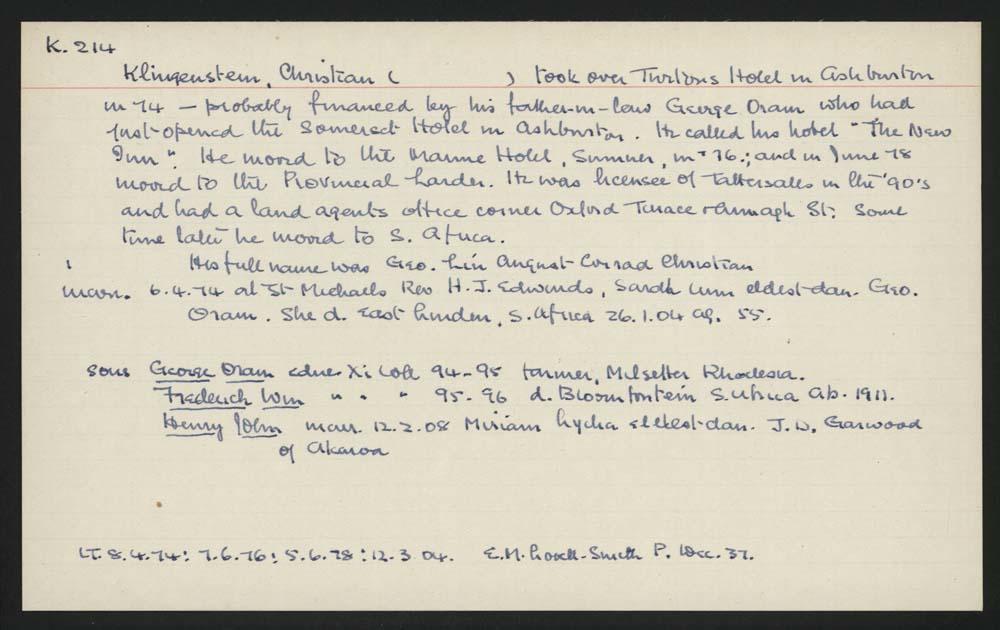 K. 214
Klingenstein, Christian ( ) took over Turtons Hotel in Ashburton
in 74 — probably financed by his father-in-law George Oram who had
just opened the Somerset Hotel in Ashburton. He called his hotel "The New
Inn". He moved to the Marine Hotel, Sumner, in 76; and in June 78
moved to the Provincial London. He was licensee of Tattersalls in the '90's
and had a land agents office corner Oxford Terrace & Armagh St. Some
time later he moved to S. Africa.
His full name was Geo. August Conrad Christian
1
marr. 6.4.74 at St Michaels Rev H. J. Edwards, Sarah Ann eldest dau. Geo.
Oram. She d. East London, S. Africa 26.1.04 ag. 55.
sons George Oram educ. Xt Coll 94-95 farmer, Melsetter Rhodesia.
Frederick Wm " " " 95-96 d. Bloemfontein S. Africa Ab. 1911.
Henry John marr. 12.2.08 Miriam Lydia eldest dau. J. W. Garwood
of Akaroa
LT. 8.4.74: 7.6.76: 5.6.78: 12.3.04. E.M. Lovell-Smith P. Dec. 37.